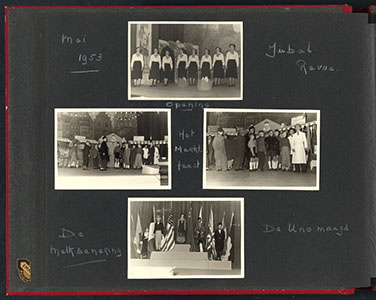 Mei
1953
Jubal
Revue
opening
Het
Markt
feest
De
Melksanering
De Uno